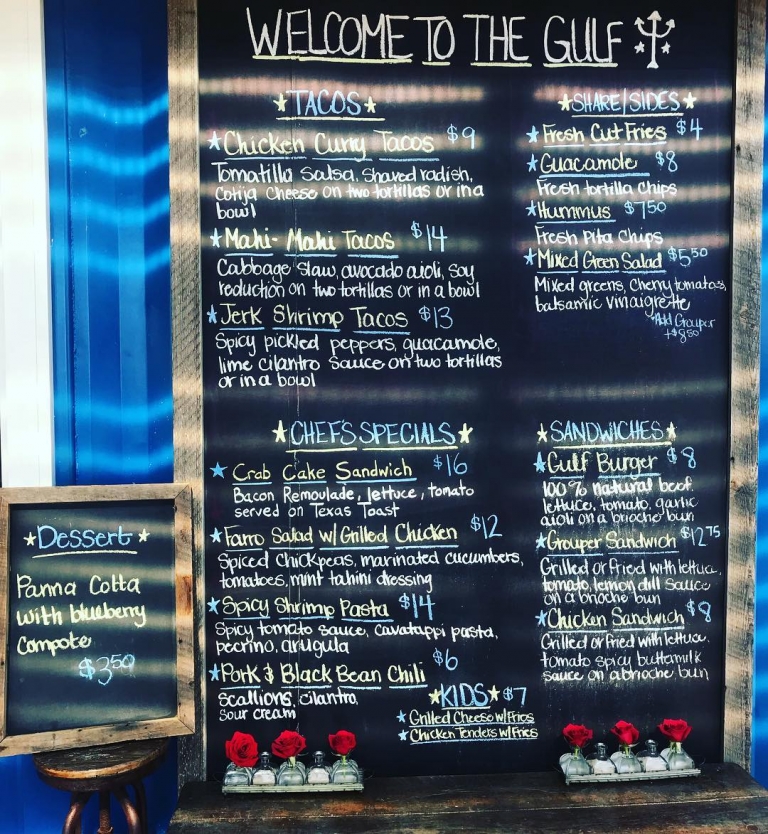 WELCOME TO THE GULF
★TACOS★
★Chicken Curry Tacos $9
Tomatilla Salsa, Shaved radish,
Cotija Cheese on two tortillas or in a
bowl
★Mahi-Mahi Tacos $14
Cabbage slaw, avocado aioli, soy
reduction on two tortillas or in a bowl
★Jerk Shrimp Tacos $13
Spicy pickled peppers, guacamole,
lime cilantro sauce on two tortillas
or in a bowl
★SHARE/SIDES★
★Fresh Cut Fries $4
★Guacamole $8
Fresh tortilla Chips
★Hummus $7.50
Fresh Pita Chips
★Mixed Green Salad $5.50
Mixed greens, Cherry tomatoes,
balsamic vinaigrette
*Add Grouper
+$8.50
★CHEF'S SPECIALS★
★Crab Cake Sandwich $16
Bacon Remoulade, lettuce, tomato
served on Texas Toast
★Farro Salad w/ Grilled Chicken $12
Spiced Chickpeas, marinated cucumbers,
tomatoes, mint tahini dressing
★Spicy Shrimp Pasta $14
Spicy tomato sauce, cavatappi pasta,
pecrino, arugula
★Pork & Black Bean Chili $6
scallions, cilantro,
sour cream
★KIDS★ $7
★Grilled Cheese w/Fries
★Chicken Tenders w/Fries
★SANDWICHES★
★Gulf Burger $8
100% natural beef
lettuce, tomato, garlic
aioli on a brioche bun
★Grouper Sandwich $12.75
Grilled or fried with lettuce,
tomato, lemon dill sauce
on a brioche bun
★Chicken Sandwich $8
Grilled or fried with lettuce,
tomato spicy buttermilk
sauce on a brioche bun
★Dessert★
Panna Cotta
with blueberry
Compote
$3.50